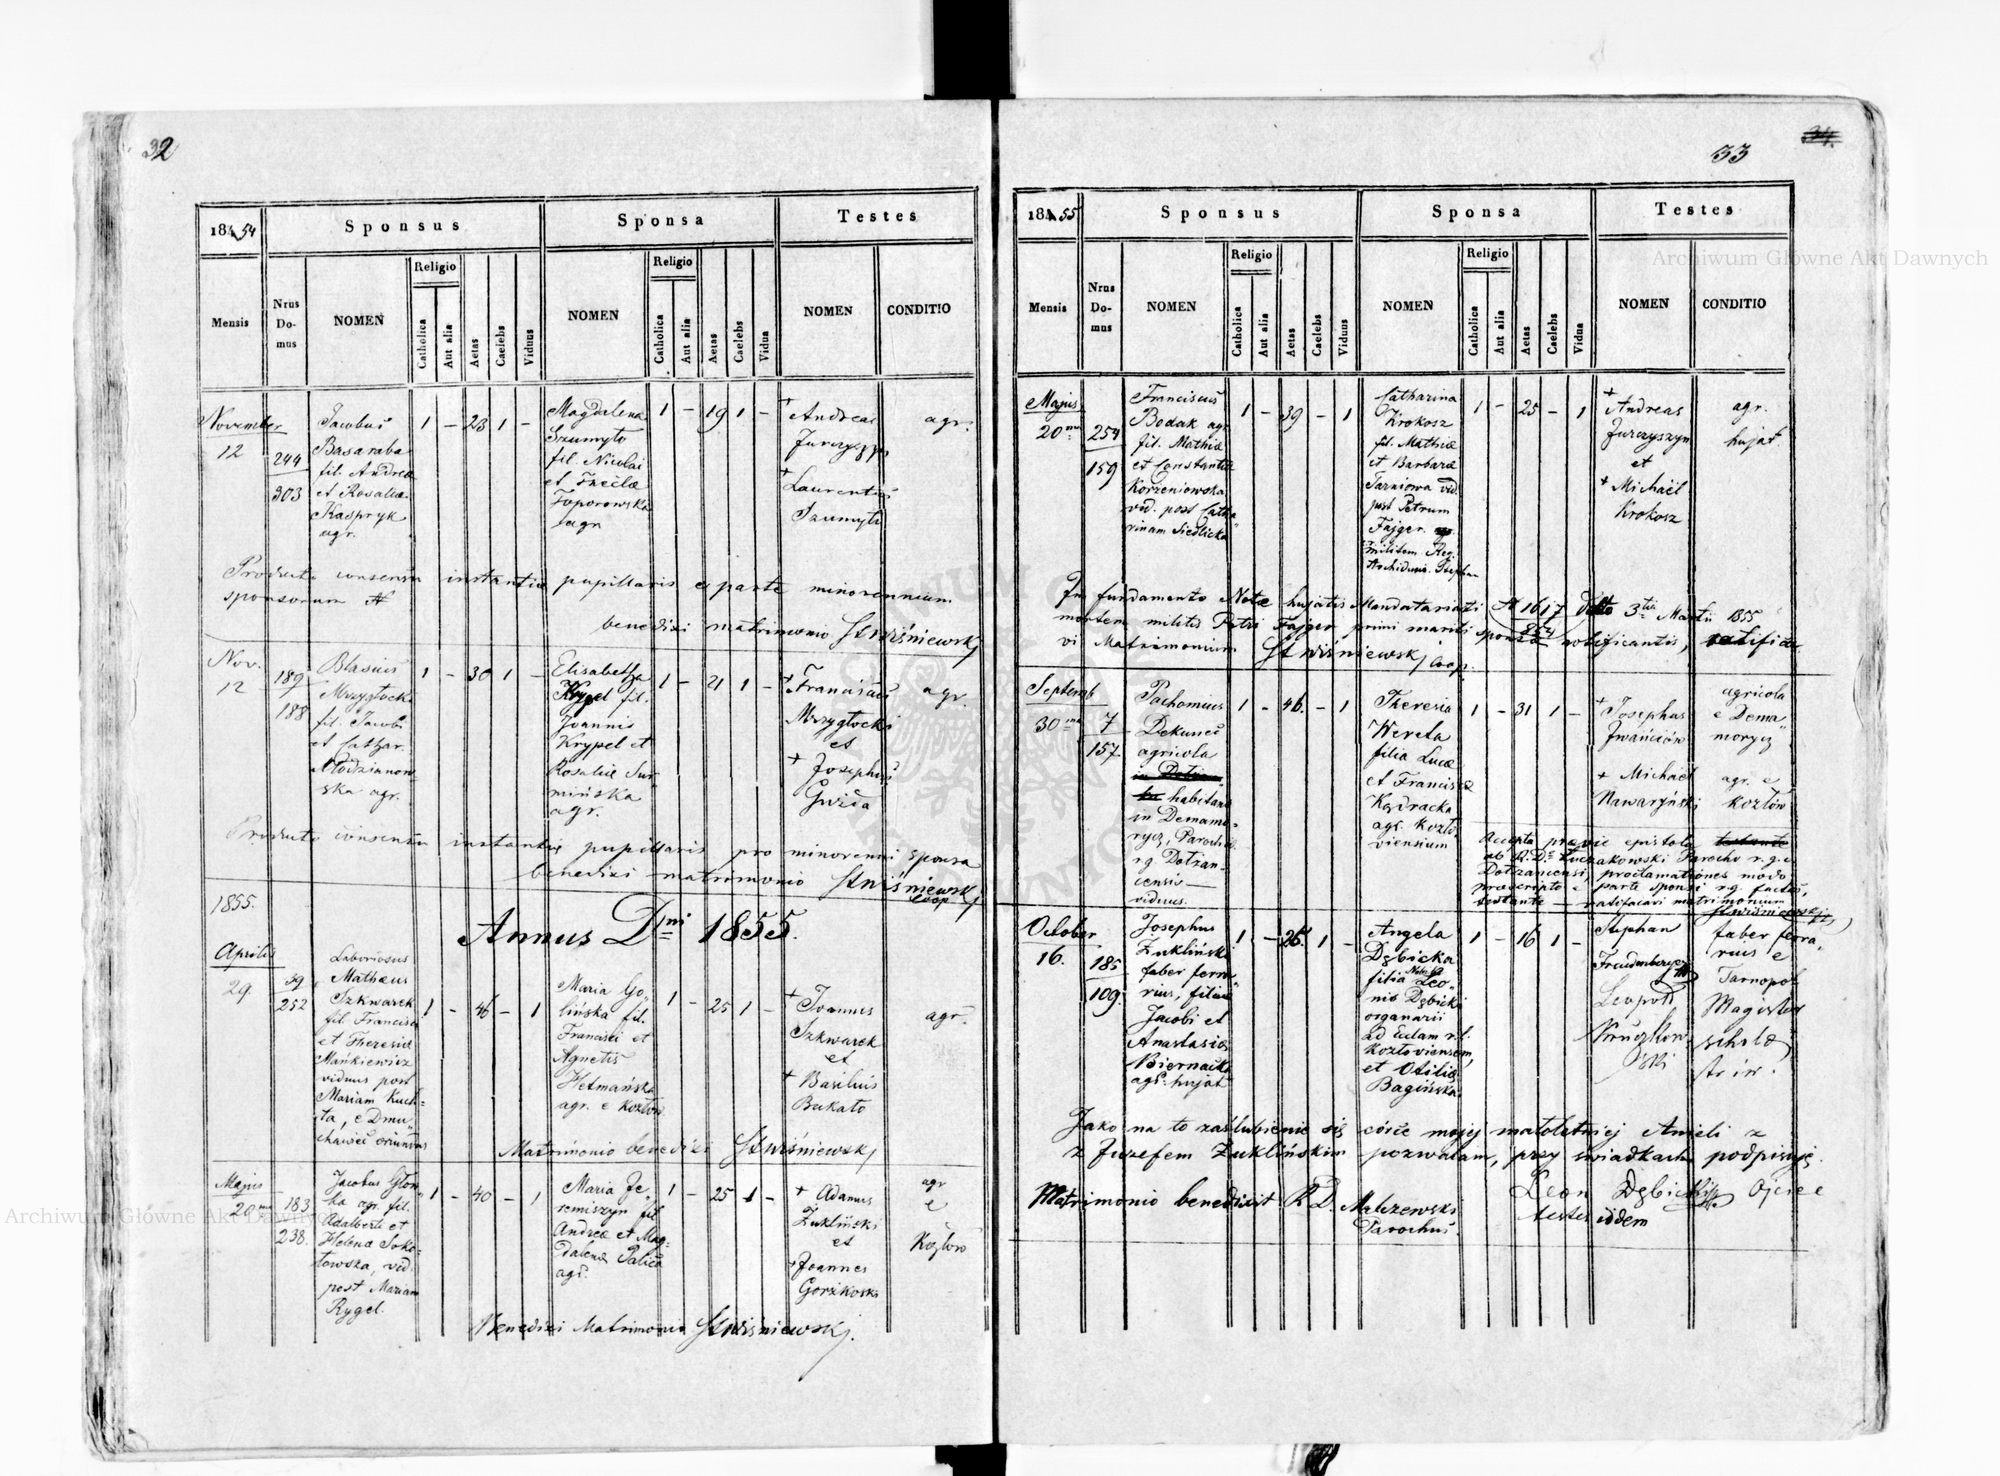 32
1854
Sponsus
Sponsa
Testes
Mensis
Nrus Do-mus
NOMEN
Religio
Catholica
Aut alia
Aetas
Caelebs
Viduus
NOMEN
Religio
Catholica
Aut alia
Aetas
Caelebs
Vidua
NOMEN
CONDITIO
November
12
244
303
Jacobus
Basaraba
fil. Andreæ
et Rosaliæ
Kaspryk
agr.
1 – 23 1 –
Magdalena
Szumyło
fil. Nicolai
et Theclæ
Toporowska
agr.
1 – 19 1 –
+ Andreas
+ Laurentius
Szumyło
agr.
Producto consensu instantiæ pupillaris e parte minorennium
sponsorum
benedixi matrimonio St Wiśniewskj
Nov.
12
189
188
Blasius
Mrzygłocki
fil. Jacobi
et Cathar.
Młodzianow
ska agr.
1 – 30 1 –
Elisabetha
Krypel fil.
Joannis
Krypel et
Rosaliæ Sur
mińska
agr.
1 – 21 1 –
+ Franciscus
Mrzygłocki
et
+ Josephus
Gwizda
agr.
Producto consensu instantiæ pupillaris pro minorenni sponsa
benedixi matrimonio St Wiśniewskj
Coop
1855.
Annus Dni 1855.
Aprilis
29
39
252
Laboriosus
Mathæus
Szkwarek
fil. Francisci
et Theresiæ
Mańkiewicz
viduus post
Mariam Kuch=
ta, e Dmu
chawiec oriundus
1 – 46 – 1
Maria Go
lińska fil.
Francisci et
Agnetis
Hetmańska
agr. e Kozłow
1 – 25 1 –
+ Joannes
Szkwarek
et
+ Basilius
Bukało
agr.
Matrimonio benedixi St Wiśniewskj
Majus
20ma
183
238.
Jacobus Głow
ka agr. fil.
Adalberti et
Helenæ Soko=
łowska, vid.
post Mariam
Rygel.
1 – 40 – 1
Maria Je
remiszyn fil
Andreæ et Mag
dalenæ Palica
agr.
1 – 25 1 –
+ Adamus
Żukliński
et
+ Joannes
Gorzkoski
agr
e
Kozłow
Benedixi Matrimonio St Wiśniewskj.
33
34.
1855
Sponsus
Sponsa
Testes
Mensis
Nrus Do-mus
NOMEN
Religio
Catholica
Aut alia
Aetas
Caelebs
Viduus
NOMEN
Religio
Catholica
Aut alia
Aetas
Caelebs
Vidua
NOMEN
CONDITIO
Majus
20ma
254
159
Franciscus
Bodak agr.
fil. Mathiæ
et Constantiæ
Korzeniowska
vid. post Catha
rinam Siedlicka
1 – 39 – 1
Catharina
Krokosz
fil. Mathiæ
et Barbaræ
Tarniowa vid.
post Petrum
Fajger
militem Reg.
Archiducis Stephan
1 – 25 – 1
+ Andreas
Jurczyszyn
et
+ Michaël
Krokosz
agr.
hujat.
In fundamento Notæ hujatis Mandatariati N 1617/854 ddto 3tia Martii 1855
mortem militis Petri Fajger primi mariti sponsæ notificantis, ratifica
vi Matrimonium St Wiśniewskj Coop.
Septemb
30ma
7
157
Pachomius
Dekunec
agricola
habitans
in Demamo=
rycz, Parochiæ
r.g. Dołżan
censis
viduus.
1 – 46. – 1
Theresia
Wereta
filia Lucæ
et Franciscæ
Kędracka
agr. Kozło
viensium
1 – 31 1 –
+ Josephus
Iwańciów
+ Michaël
Nawarzyński
agricola
e Dema
morycz
agr. e
Kozłów
Accepta prævie epistola
ab R. D. Kuczakowski Parocho r.g.c.
Dołżancensi, proclamationes modo
præscripto e parte sponsi r.g. factas,
testante – ratificavi matrimonium
St Wiśniewskj
October
16.
185
109
Josephus
Żukliński
faber ferra
rius, filius
Jacobi et
Anastasiæ
Biernacka
agr. hujat
1 – 26. 1 –
Angela
Dębicka
filia Leo
nis Dębicki
organarii
ad Eccl. r.l.
Kozłoviensem,
et Otiliæ
Bagińska.
1 – 16 1 –
Stephan
Freudenberger
Leopold
faber ferra
rius e
Tarnopol
Magister
scholæ
Jako na to zaślubienie się córce mojej małoletniej Anieli z
z Juzefem Żuklińskim pozwalam, przy świadkach podpisuję.
Leon Dębicki Ojciec
testes iidem
Matrimonio benedixit R. D. Malczewski
Parochus.
Archiwum Główne Akt Dawnych
Archiwum Główne Akt Dawnych